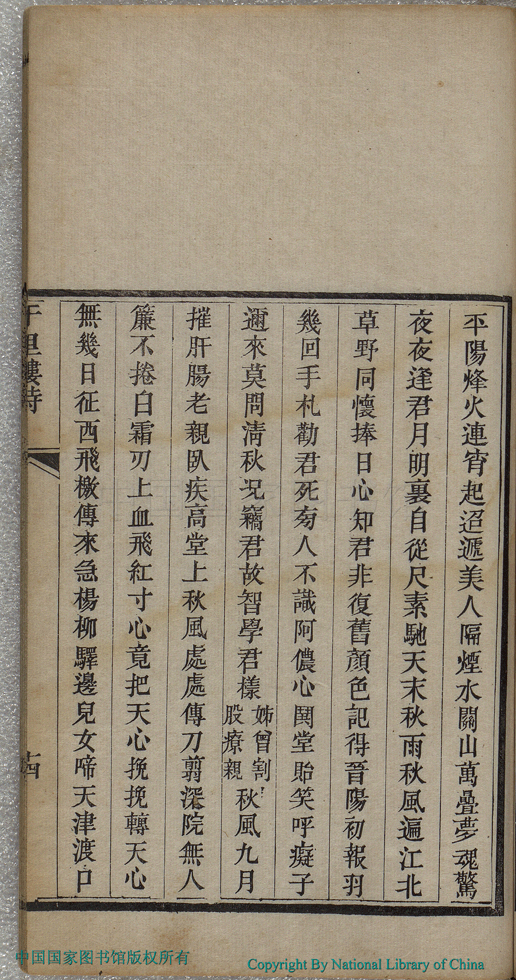 平陽烽火連宵起迢遞美人隔煙水關山萬疊夢魂驚
夜夜逢君月明裏自從尺素馳天末秋雨秋風遍江北
草野同懷捧日心知君非復舊顏色記得晉陽初報羽
幾回手札勸君死旁人不識阿儂心鬨堂貽笑呼癡子
邇來莫問淸秋况竊君故智學君樣姊曾割股療親秋風九月
摧肝腸老親臥疾高堂上秋風處處傳刀翦深院無人
簾不捲白霜刃上血飛紅寸心竟把天心挽挽轉天心
無幾日征西飛檄傳來急楊柳驛邊兒女啼天津渡口
十四
中国国家图书馆版权所有
Copyright By National Library of China